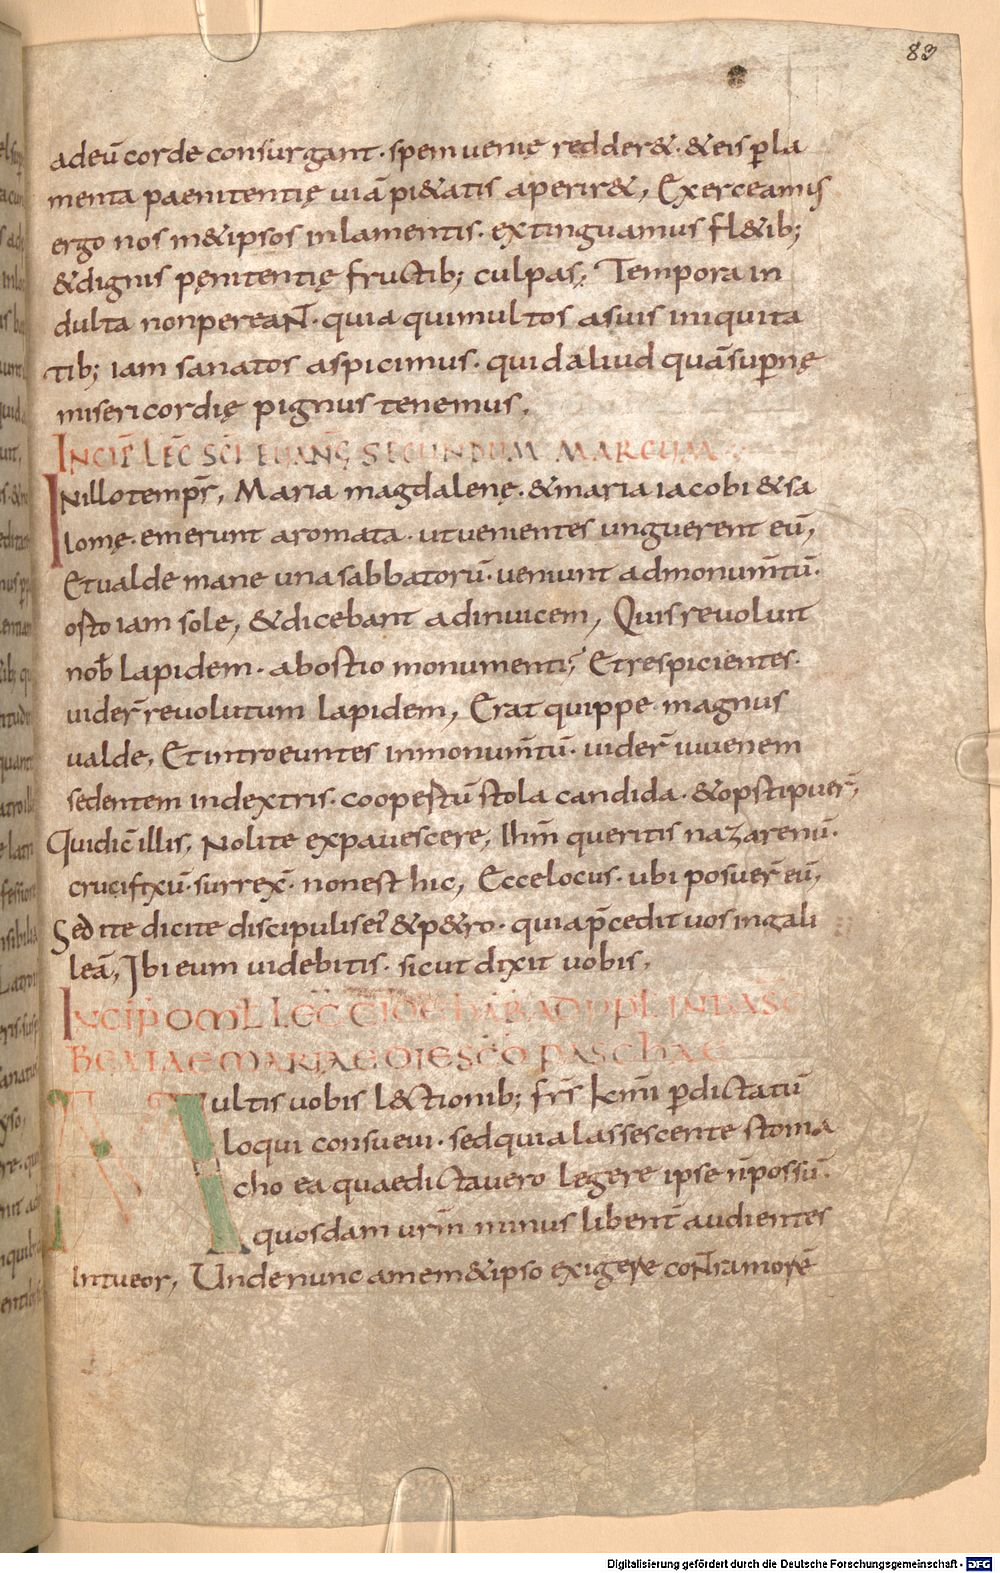 83
adeū corde consurgant· spem uenię redder&· & eis p̱ la
menta paenitentię uiā pi&atis aperir&, Exerceamis
ergo nos m&ipsos in lamentis· extinguamus fl&ib;
& dignis pęnitentię fructib; culpas; Tempora in
dulta non pereant· quia qui multos a suis iniquita
tib; iam sanatos aspicimus· quid aliud quā sup̱nę
misericordię pignus tenemus.
INCIP̄ LEC̄ SCĪ EUANḠ SECUNDUM MARCUM
In illo temp̄r, Maria magdalenę· & maria iacobi & sa
lomę· emerunt aromata· ut uenientes unguerent eū,
Et ualde mane una sabbatorū· ueniunt ad monum̄tū·
orto iam sole, & dicebant adinuicem, Quis reuoluit
nob̄ lapidem· ab ostio monumenti; Et respicientes·
uider̄ reuolutum lapidem, Erat quippe magnus
ualde, Et introeuntes in monum̄tū· uider̄ iuuenem
sedentem in dextris· coopertū stola candida· & opstipuer̄,
Qui dic̄ illis, Nolite expauescere, Ihm̄ queritis nazarenū·
crucifixū· surrex̄· non est hic, Ecce locus· ubi posuer̄ eū,
Sed ite dicite discipulis ei' & p&ro· quia p̄cedit uos in gali
leā, Ibi eum uidebitis· sicut dixit uobis,
INCIP̄ OML̄ LEC̄TIOE HAB̄ AD PPL̄ IN BAS̄C
BEATAE MARIAE DIE SCŌ PASCHAE
Multis uobis l&ctionib; fr̄s km̄i p̱ dictatū
loqui consueui· sed quia lassescente stoma
cho ea quae dictauero legere ipse n̄ possū·
quosdam ur̄m minus libent̄ audientes
intueor, Unde nunc a mem&ipso exigere contra morē
Digitalisierung gefördert durch die Deutsche Forschungsgemeinschaft - DFG